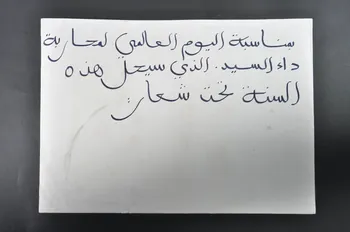 بمناسبة اليوم العالمي لمحاربة
داء السيد. الذي سيحل هذه
السنة تحت شعار